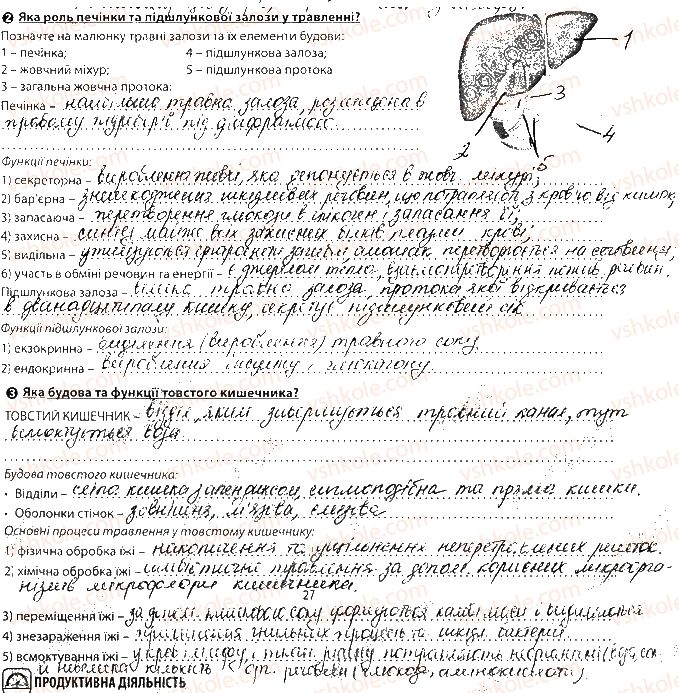 2 Яка роль печінки та підшлункової залози у травленні?
Позначте на малюнку травні залози та їх елементи будови:
1 – печінка; 4 – підшлункова залоза;
2 – жовчний міхур; 5 – підшлункова протока
3 – загальна жовчна протока:
1
3
2
5
4
Печінка – найбільша травна залоза, розміщена в
правому підребер'ї під діафрагмою
Функції печінки:
1) секреторна – вироблення жовчі, яка депонується в жовч. міхурі;
2) бар'єрна – знешкодження шкідливих речовин, що потрапляють з кров'ю від кишок;
3) запасаюча – перетворення глюкози в глікоген і запасання її;
4) захисна – синтез майже всіх захисних білків плазми крові;
5) видільна – утилізуються шкідливий аміак перетворюється на сечовину;
6) участь в обміні речовин та енергії – є джерелом тепла,
Підшлункова залоза – велика травна залоза, протока якої відкривається
в дванадцятипалу кишку, секретує підшлунковий сік
Функції підшлункової залози:
1) екзокринна – виділення (вироблення) травного соку
2) ендокринна – вироблення інсуліну і глюкагону
3 Яка будова та функції товстого кишечника?
ТОВСТИЙ КИШЕЧНИК – відділ, яким завершується травний канал, тут
всмоктується вода
Будова товстого кишечника:
• Відділи – сліпа кишка з апендиксом сигмоподібна та пряма кишки.
• Оболонки стінок – зовнішня, м'язова, слизова
Основні процеси травлення у товстому кишечнику:
1) фізична обробка їжі – накопичення та ущільнення неперетравлених решток.
2) хімічна обробка їжі – симбіотичне травлення за допом. корисних мікроорга-
нізмів мікрофлори кишечника.
27
3) переміщення їжі – формуються калові маси і
4) знезараження їжі – гнильних процесів та шкідл. бактерій
5) всмоктування їжі – у кров і лімфу
й невелика кількість орг. речовин (глюкоза, амінокислоти)
ПРОДУКТИВНА ДІЯЛЬНІСТЬ